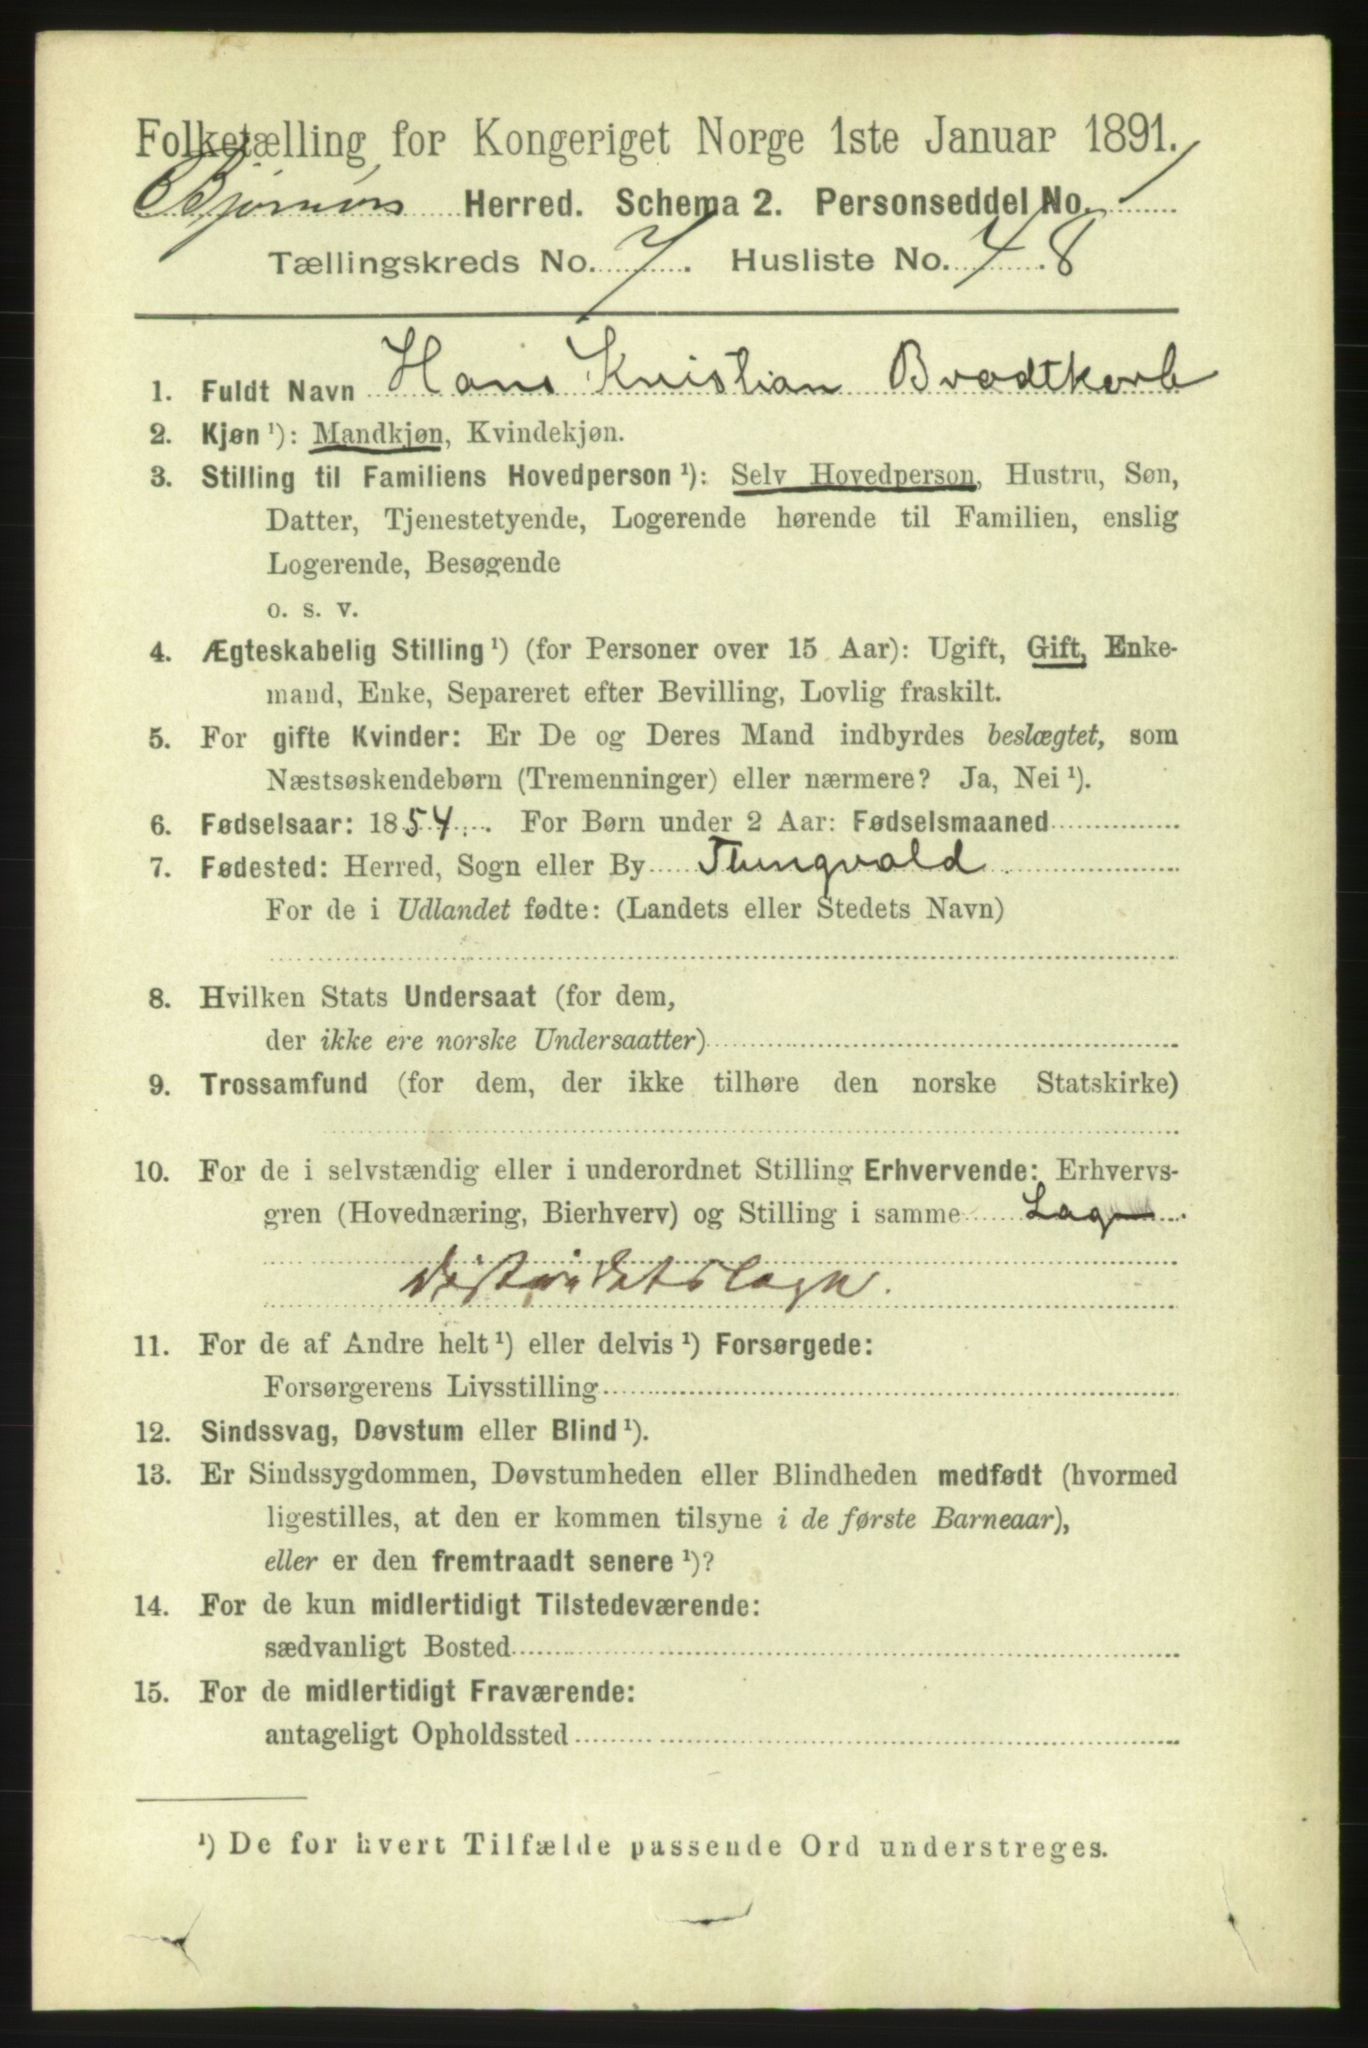 Folketælling for Kongeriget Norge 1ste Januar 1891.
Bjørnørs Herred. Schema 2. Personseddel No. 1
Tællingskreds No. 7. Husliste No. 48
1. Fuldt Navn Hans Kristian Brodtkorb
2. Kjøn ¹): Mandkjøn, Kvindekjøn.
3. Stilling til Familiens Hovedperson ¹): Selv Hovedperson, Hustru, Søn,
Datter, Tjenestetyende, Logerende hørende til Familien, enslig
Logerende, Besøgende
o. s. v.
4. Ægteskabelig Stilling ¹) (for Personer over 15 Aar): Ugift, Gift, Enke-
mand, Enke, Separeret efter Bevilling, Lovlig fraskilt.
5. For gifte Kvinder: Er De og Deres Mand indbyrdes beslægtet, som
Næstsøskendebørn (Tremenninger) eller nærmere? Ja, Nei ¹).
6. Fødselsaar: 1854. For Børn under 2 Aar: Fødselsmaaned
7. Fødested: Herred, Sogn eller By Tlingvold
For de i Udlandet fødte: (Landets eller Stedets Navn)
8. Hvilken Stats Undersaat (for dem,
der ikke ere norske Undersaatter)
9. Trossamfund (for dem, der ikke tilhøre den norske Statskirke)
10. For de i selvstændig eller i underordnet Stilling Erhvervende: Erhvervs-
gren (Hovednæring, Bierhverv) og Stilling i samme Læge
distriktslæge.
11. For de af Andre helt ¹) eller delvis ¹) Forsørgede:
Forsørgerens Livsstilling
12. Sindssvag, Døvstum eller Blind ¹).
13. Er Sindssygdommen, Døvstumheden eller Blindheden medfødt (hvormed
ligestilles, at den er kommen tilsyne i de første Barneaar),
eller er den fremtraadt senere ¹)?
14. For de kun midlertidigt Tilstedeværende:
sædvanligt Bosted
15. For de midlertidigt Fraværende:
antageligt Opholdssted
¹) De for hvert Tilfælde passende Ord understreges.